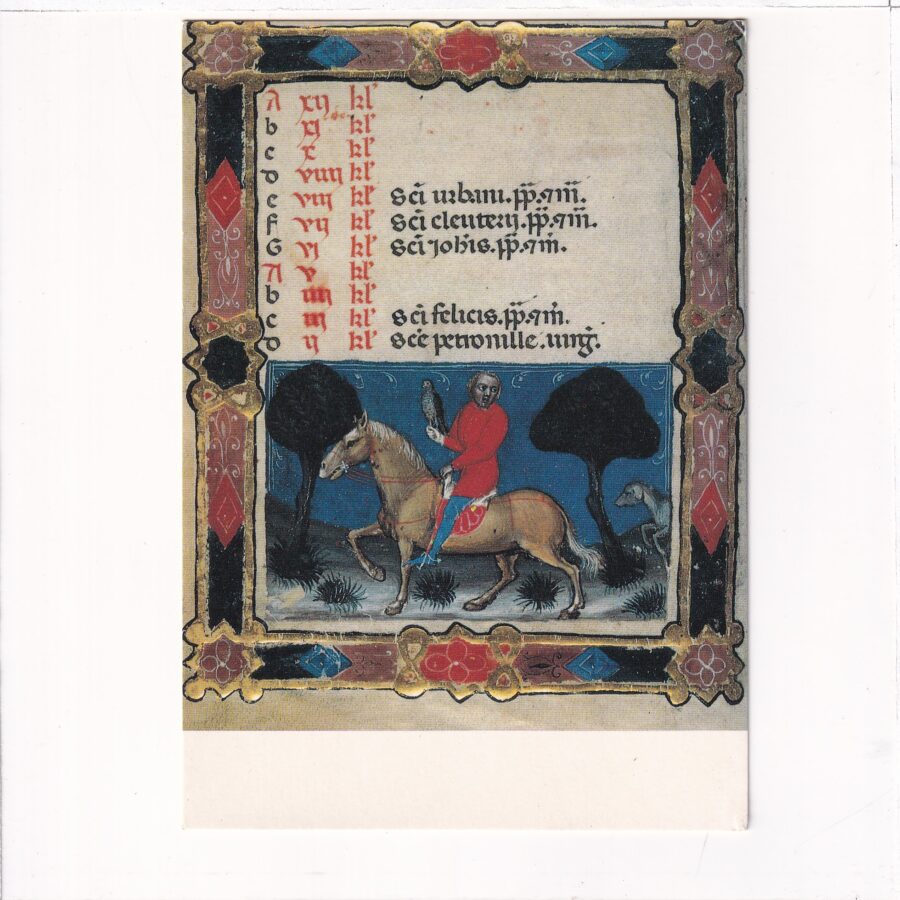 A xij kl'
b xj kl'
c x kl'
d viiij kl'
e viij kl' Sci urbani. pp. ⁊ m̄.
f vij kl' Sci eleuterij. pp. ⁊ m̄.
G vj kl' Sci Joh̄is. pp. ⁊ m̄.
A v kl'
b iiij kl'
c iij kl' Sci felicis. pp. ⁊ m̄.
d ij kl' Sce petronille. uirḡ.